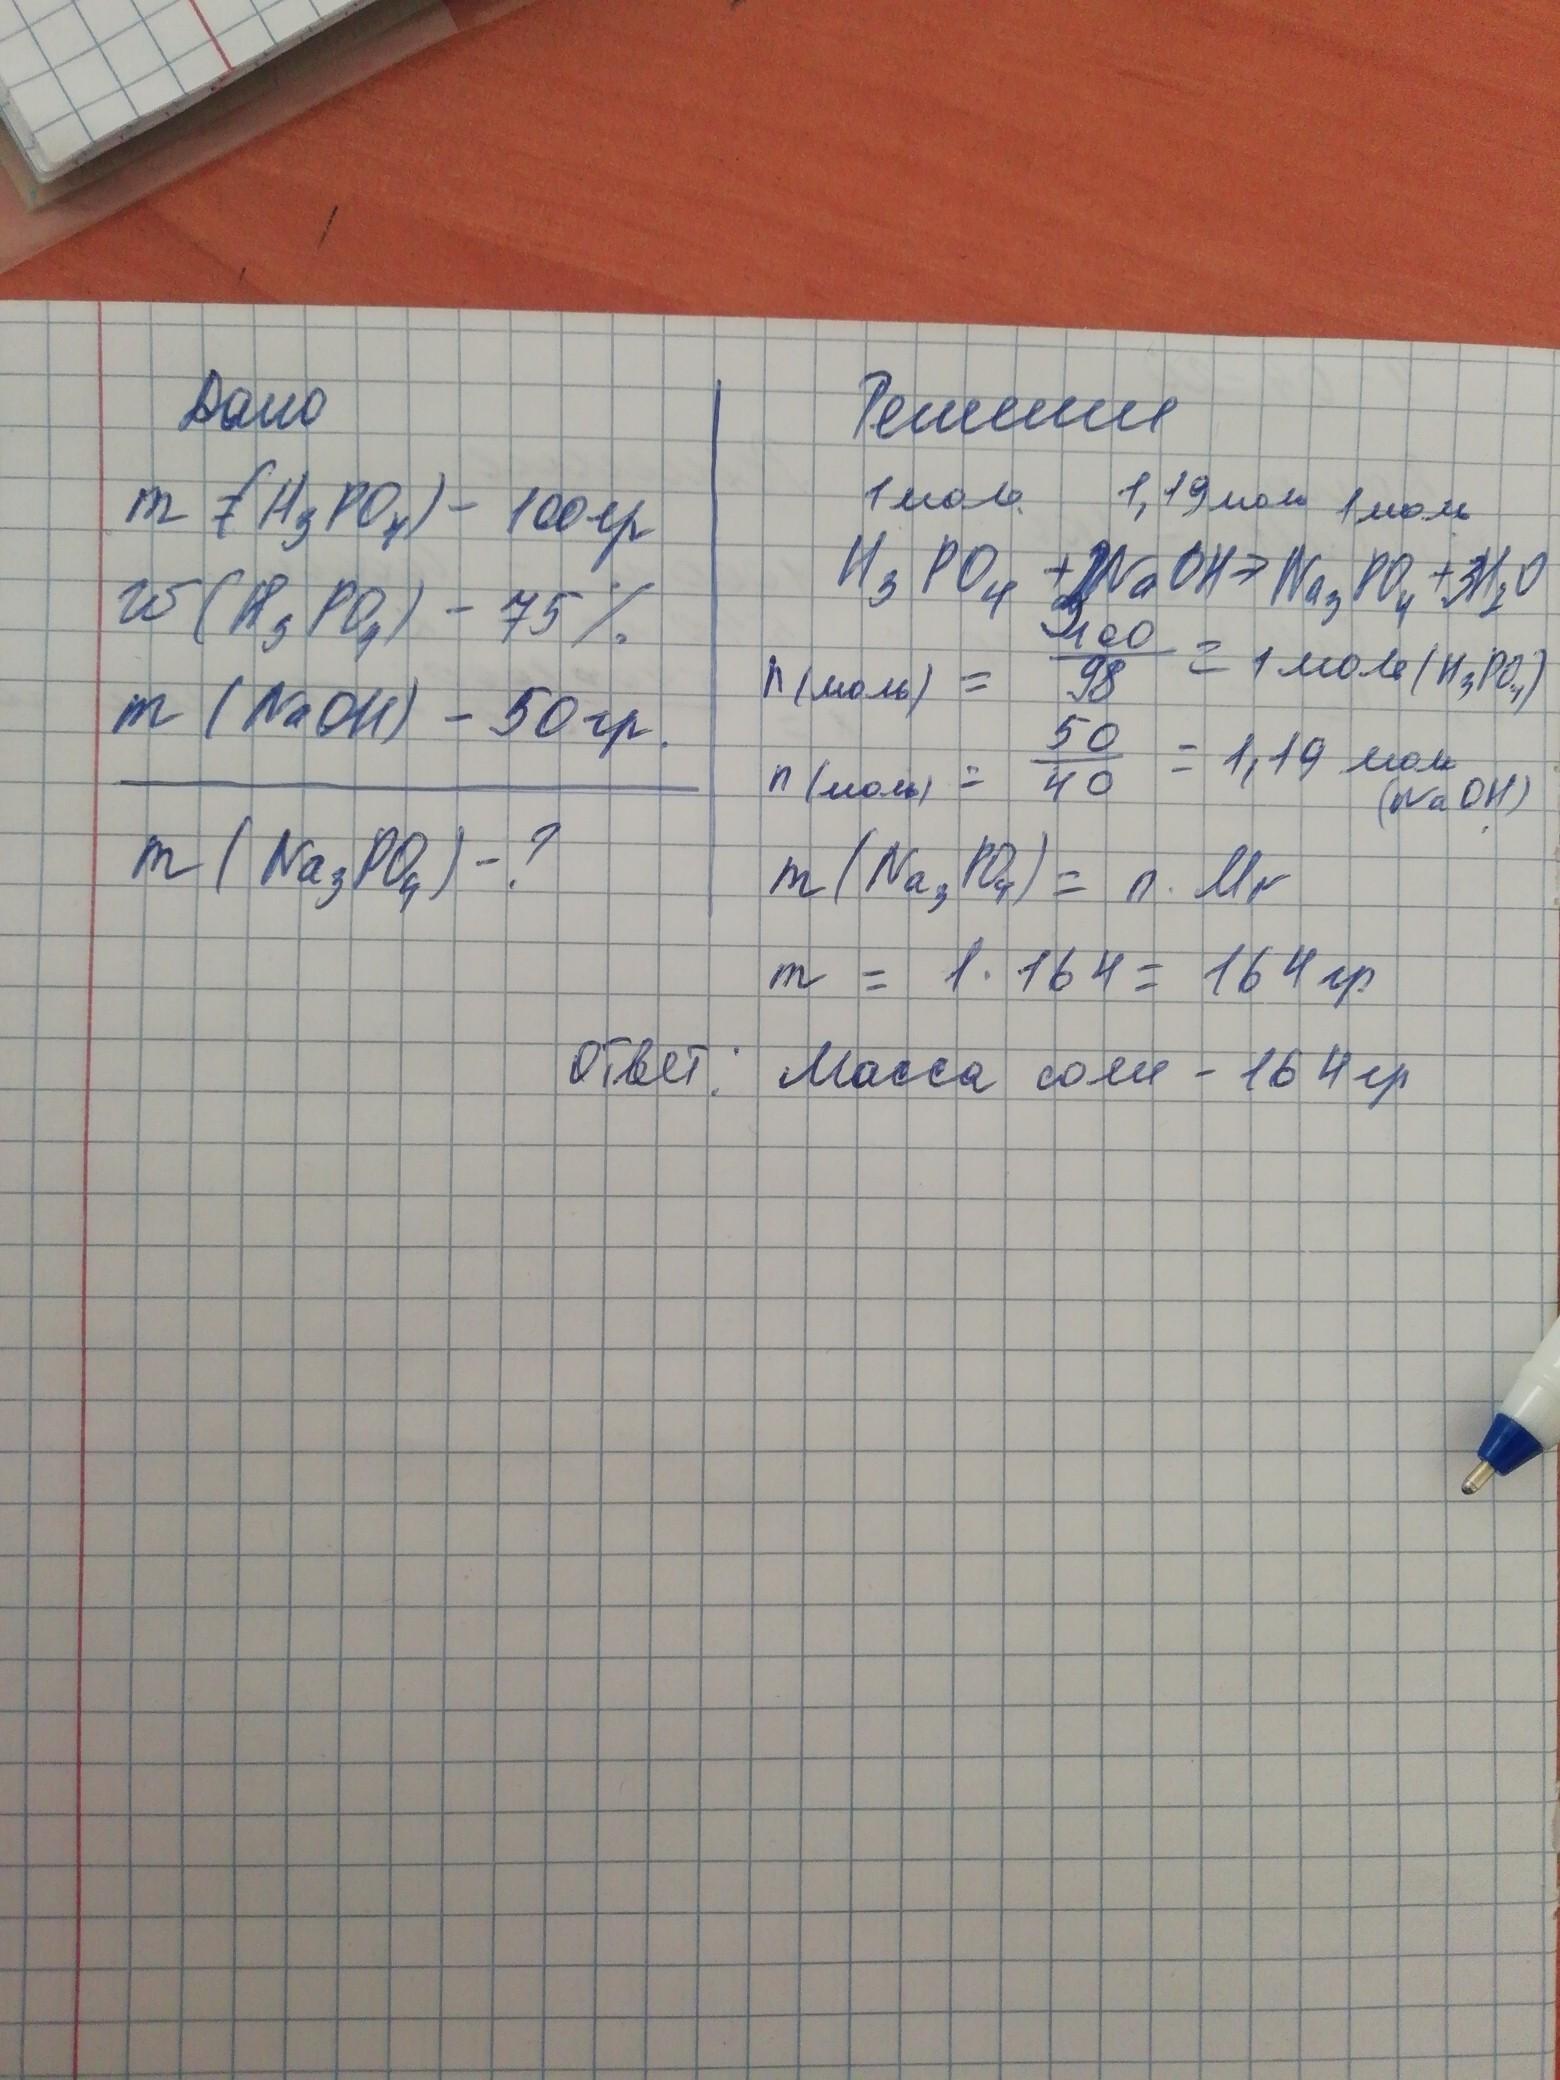 Дано
m (H3PO4) - 100гр
w (H3PO4) - 75%
m (NaOH) - 50гр.
m (Na3PO4) - ?
Решение
1моль 1,19моль 1моль
H3PO4 + 3NaOH → Na3PO4 + 3H2O
n(моль) = 100/98 = 1моль (H3PO4)
n(моль) = 50/40 = 1,19 моль (NaOH)
m (Na3PO4) = n · Mr
m = 1 · 164 = 164гр
Ответ: Масса соли - 164гр